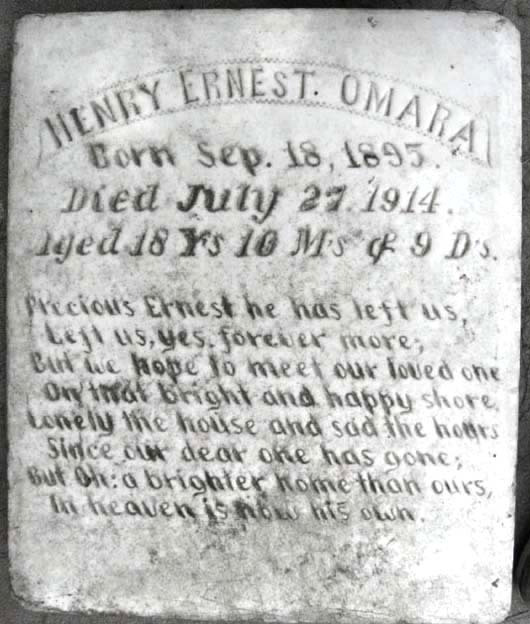 HENRY ERNEST. OMARA
Born Sep. 18, 1895.
Died July 27. 1914.
Aged 18 Ys 10 M's & 9 D's.
Precious Ernest he has left us,
Left us, yes, forever more;
But we hope to meet our loved one
On that bright and happy shore.
Lonely the house and sad the hours
Since our dear one has gone;
But Oh: a brighter home than ours,
In heaven is now his own.